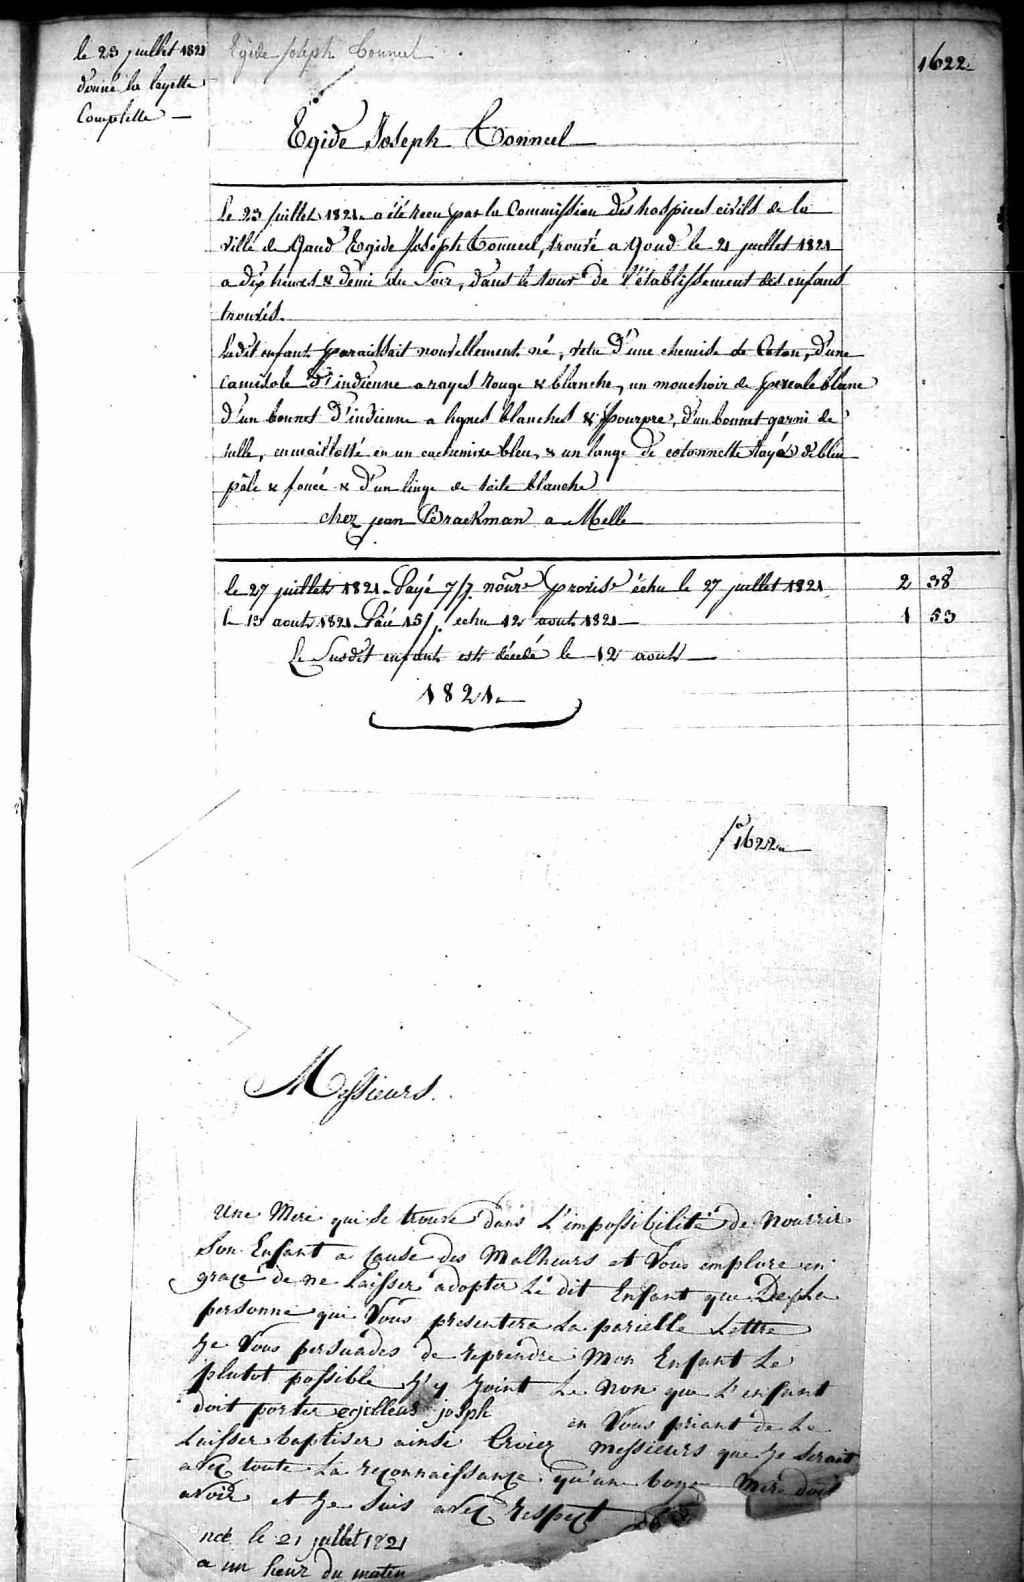 le 23 juillet 1821
donné la layette
Complette —
Egide Joseph Tonneel
1622
Egide Joseph Tonneel
Le 23 juillet 1821 a été recu par la Commission des hospices civils de la
ville de Gand Egide Joseph Tonneel, trouvé a Gand le 21 juillet 1821
a dix heures & demi du Soir, dans le tour de l'établissement des enfans
trouvés.
Ledit enfant paraissait nouvellement né, vetu d'une chemise de Coton, d'une
camisole d'indienne a rayes rouge & blanche, un mouchoir de percale blanc
d'un bonnet d'indienne a lignes blanches & pourpre, d'un bonnet garni de
tulle, enmaillotté en un cachemire bleu, & un lange de cotonnette rayé de bleu
pâle & foncé & d'un linge de toile blanche
chez jean Braekman a Melle
le 27 juillet 1821 Payé 7/7 nourr proviss échu le 27 juillet 1821 2 38
le 13 aout 1821 Paié 15/ echu 12 aout 1821 1 53
Le Susdit enfant est décédé le 12 aout
1821
f° 1622
Messieurs.
Une Mere qui Se trouve dans L'impossibilité de Nourrir
Son Enfant a Cause des Malheurs et Vous emplore en
grace de ne Laisser adopter Le dit Enfant que De La
personne qui Vous presentera La parielle Lettre
Je Vous persuades de reprendre Mon Enfant Le
plutot possible J'y Joint Le Non que L'enfant
doit porter egilleus joseph en Vous priant de Le
Laisser baptiser ainsi Croiez Messieurs que Je Serait
avec toute La reconnaissance qu'un bone Mere doit
avoir et Je Suis avec respect
neé le 21 jullet 1821
a un heur du matin